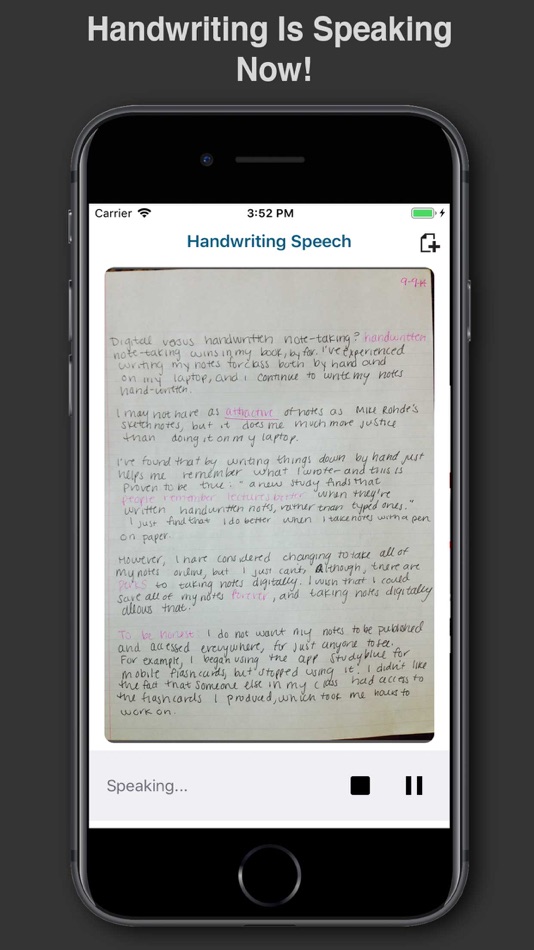 Handwriting Is Speaking
Now!
Carrier
3:52 PM
Handwriting Speech
9-9-14
Digital versus handwritten note-taking? handwritten
note-taking wins in my book, by far. I've experienced
writing my notes for class both by hand and
on my laptop, and i continue to write my notes
hand-written.
I may not have as attractive of notes as Mike Rohde's
sketchnotes, but it does me much more justice
than doing it on my laptop.
I've found that by writing things down by hand just
helps me remember what I wrote- and this is
proven to be true. "a new study finds that
people remember lectures better "when they're
written handwritten notes, rather than typed ones."
I just find that I do better when I take notes with a pen
on paper.
However, I have considered changing to take all of
my notes online, but I just can't. Although, there are
perks to taking notes digitally. I wish that I could
save all of my notes forever, and taking notes digitally
allows that.
To be honest I do not want my notes to be published
and accessed everywhere, for just anyone to see.
For example, I began using the app Studyblue for
mobile flashcards, but stopped using it. I didn't like
the fact that someone else in my class had access to
the flashcards I produced, which took me hours to
work on.
Speaking...